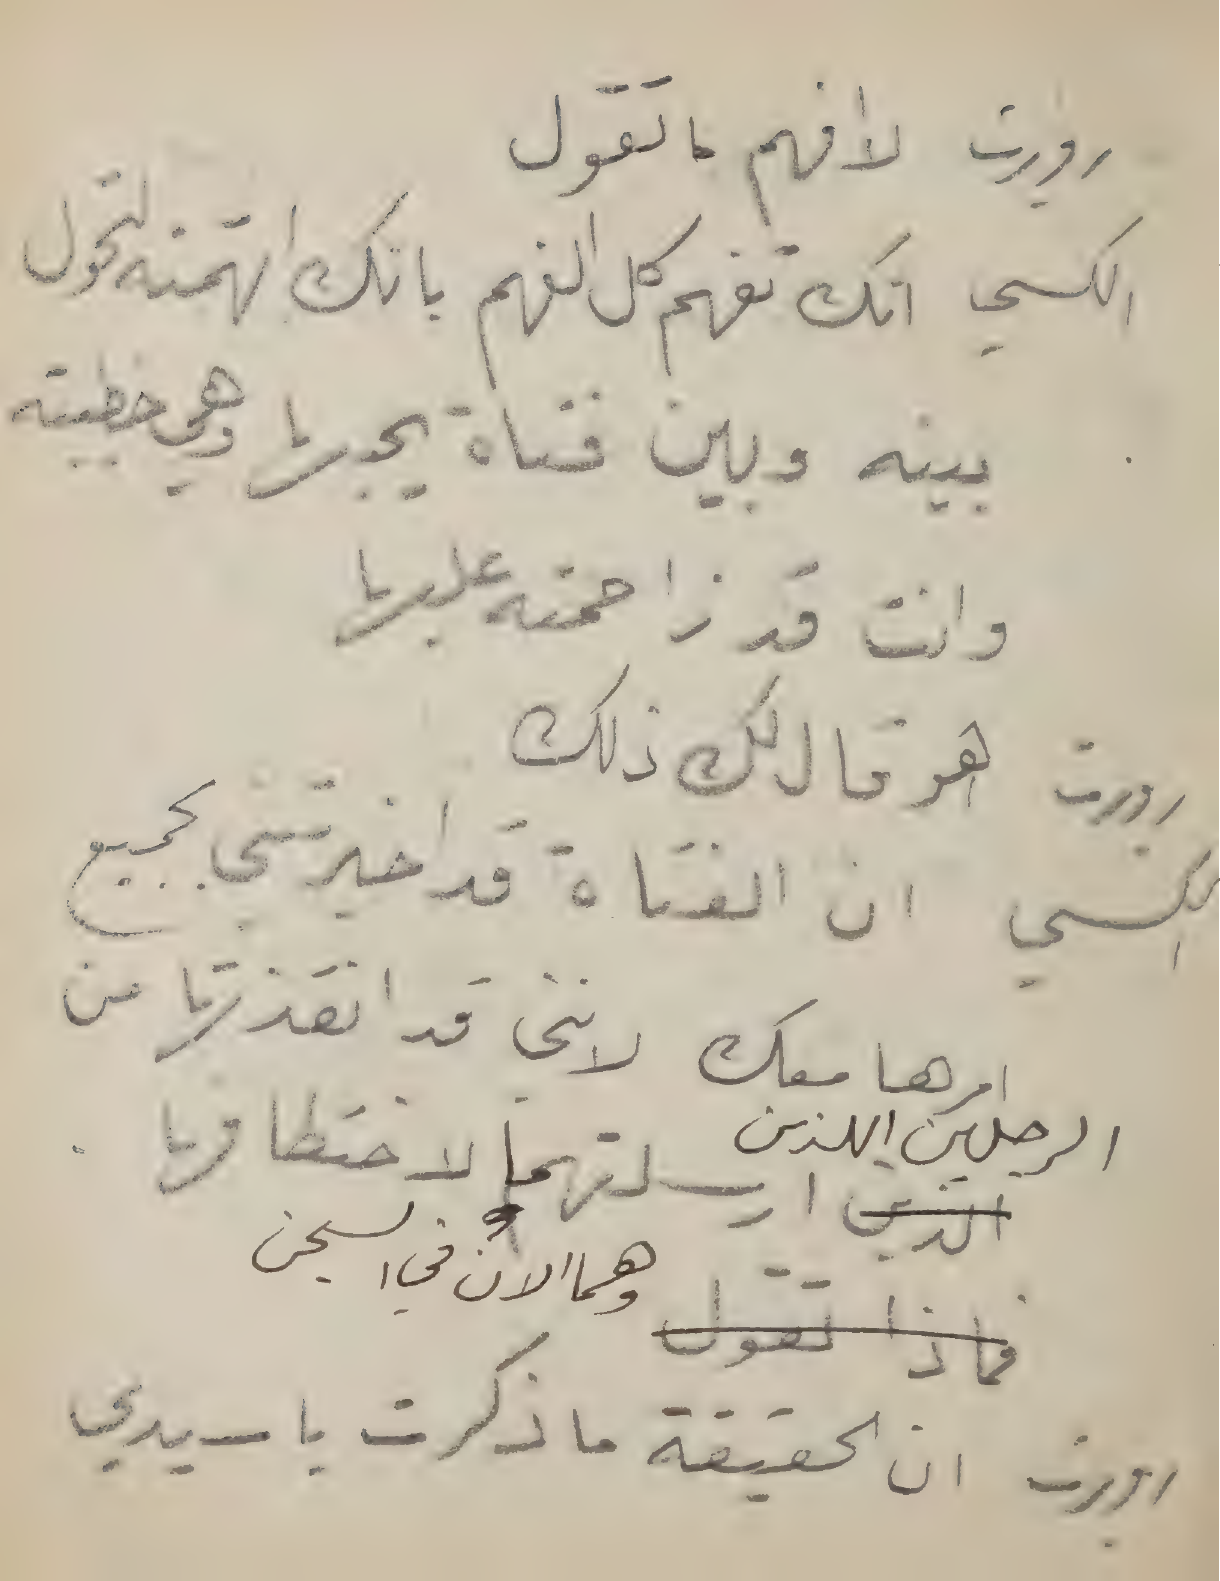 روبرت لا افهم ما تقول
الكسي انك تفهم كل الفهم بانك اتهمته لتحول
بينه وبين فتاة يحبها وهي خطيبته
وانت قد زاحمته عليها
روبرت اهو قال لك ذلك
الكسي ان الفتاة قد اخبرتني بجميع
امرها معك لانني قد انقذتها من
الرجلين اللذين
الذين ارسلتهما لاختطافها
وهما الان في السجن
فماذا تقول
روبرت ان الحقيقة ما ذكرت يا سيدي